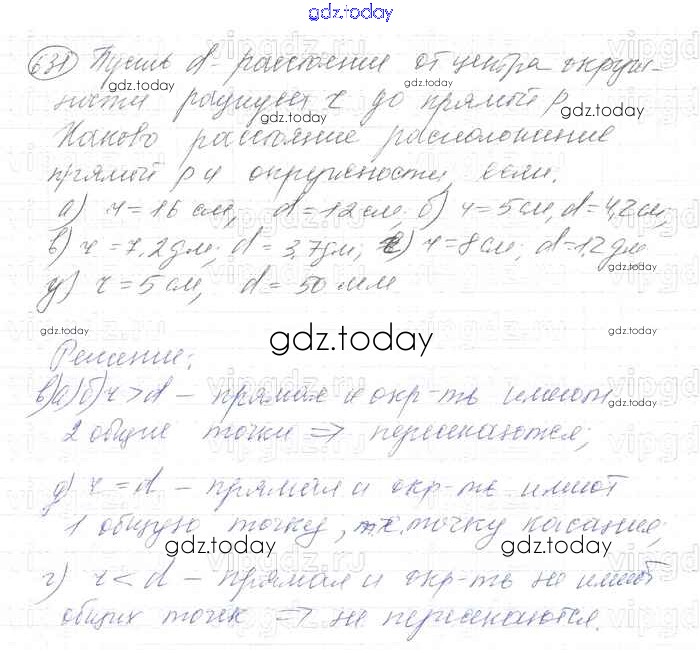 gdz.today
631 Пусть d - расстояние от центра окруж-
ности радиуса r до прямой p
Каково расстояние расположение
прямой p и окружности, если:
а) r = 16 см, d = 12 см. б) r = 5 см, d = 4,2 см;
в) r = 7,2 дм; d = 3,7 дм; г) r = 8 см; d = 1,2 дм
д) r = 5 см, d = 50 мм
gdz.today
Решение:
в) а) б) r > d - прямая и окр-ть имеют
2 общие точки => пересекаются;
д) r = d - прямая и окр-ть имеют
1 общую точку, т.е. точку касания;
gdz.today
г) r < d - прямая и окр-ть не имеют
общих точек => не пересекаются.